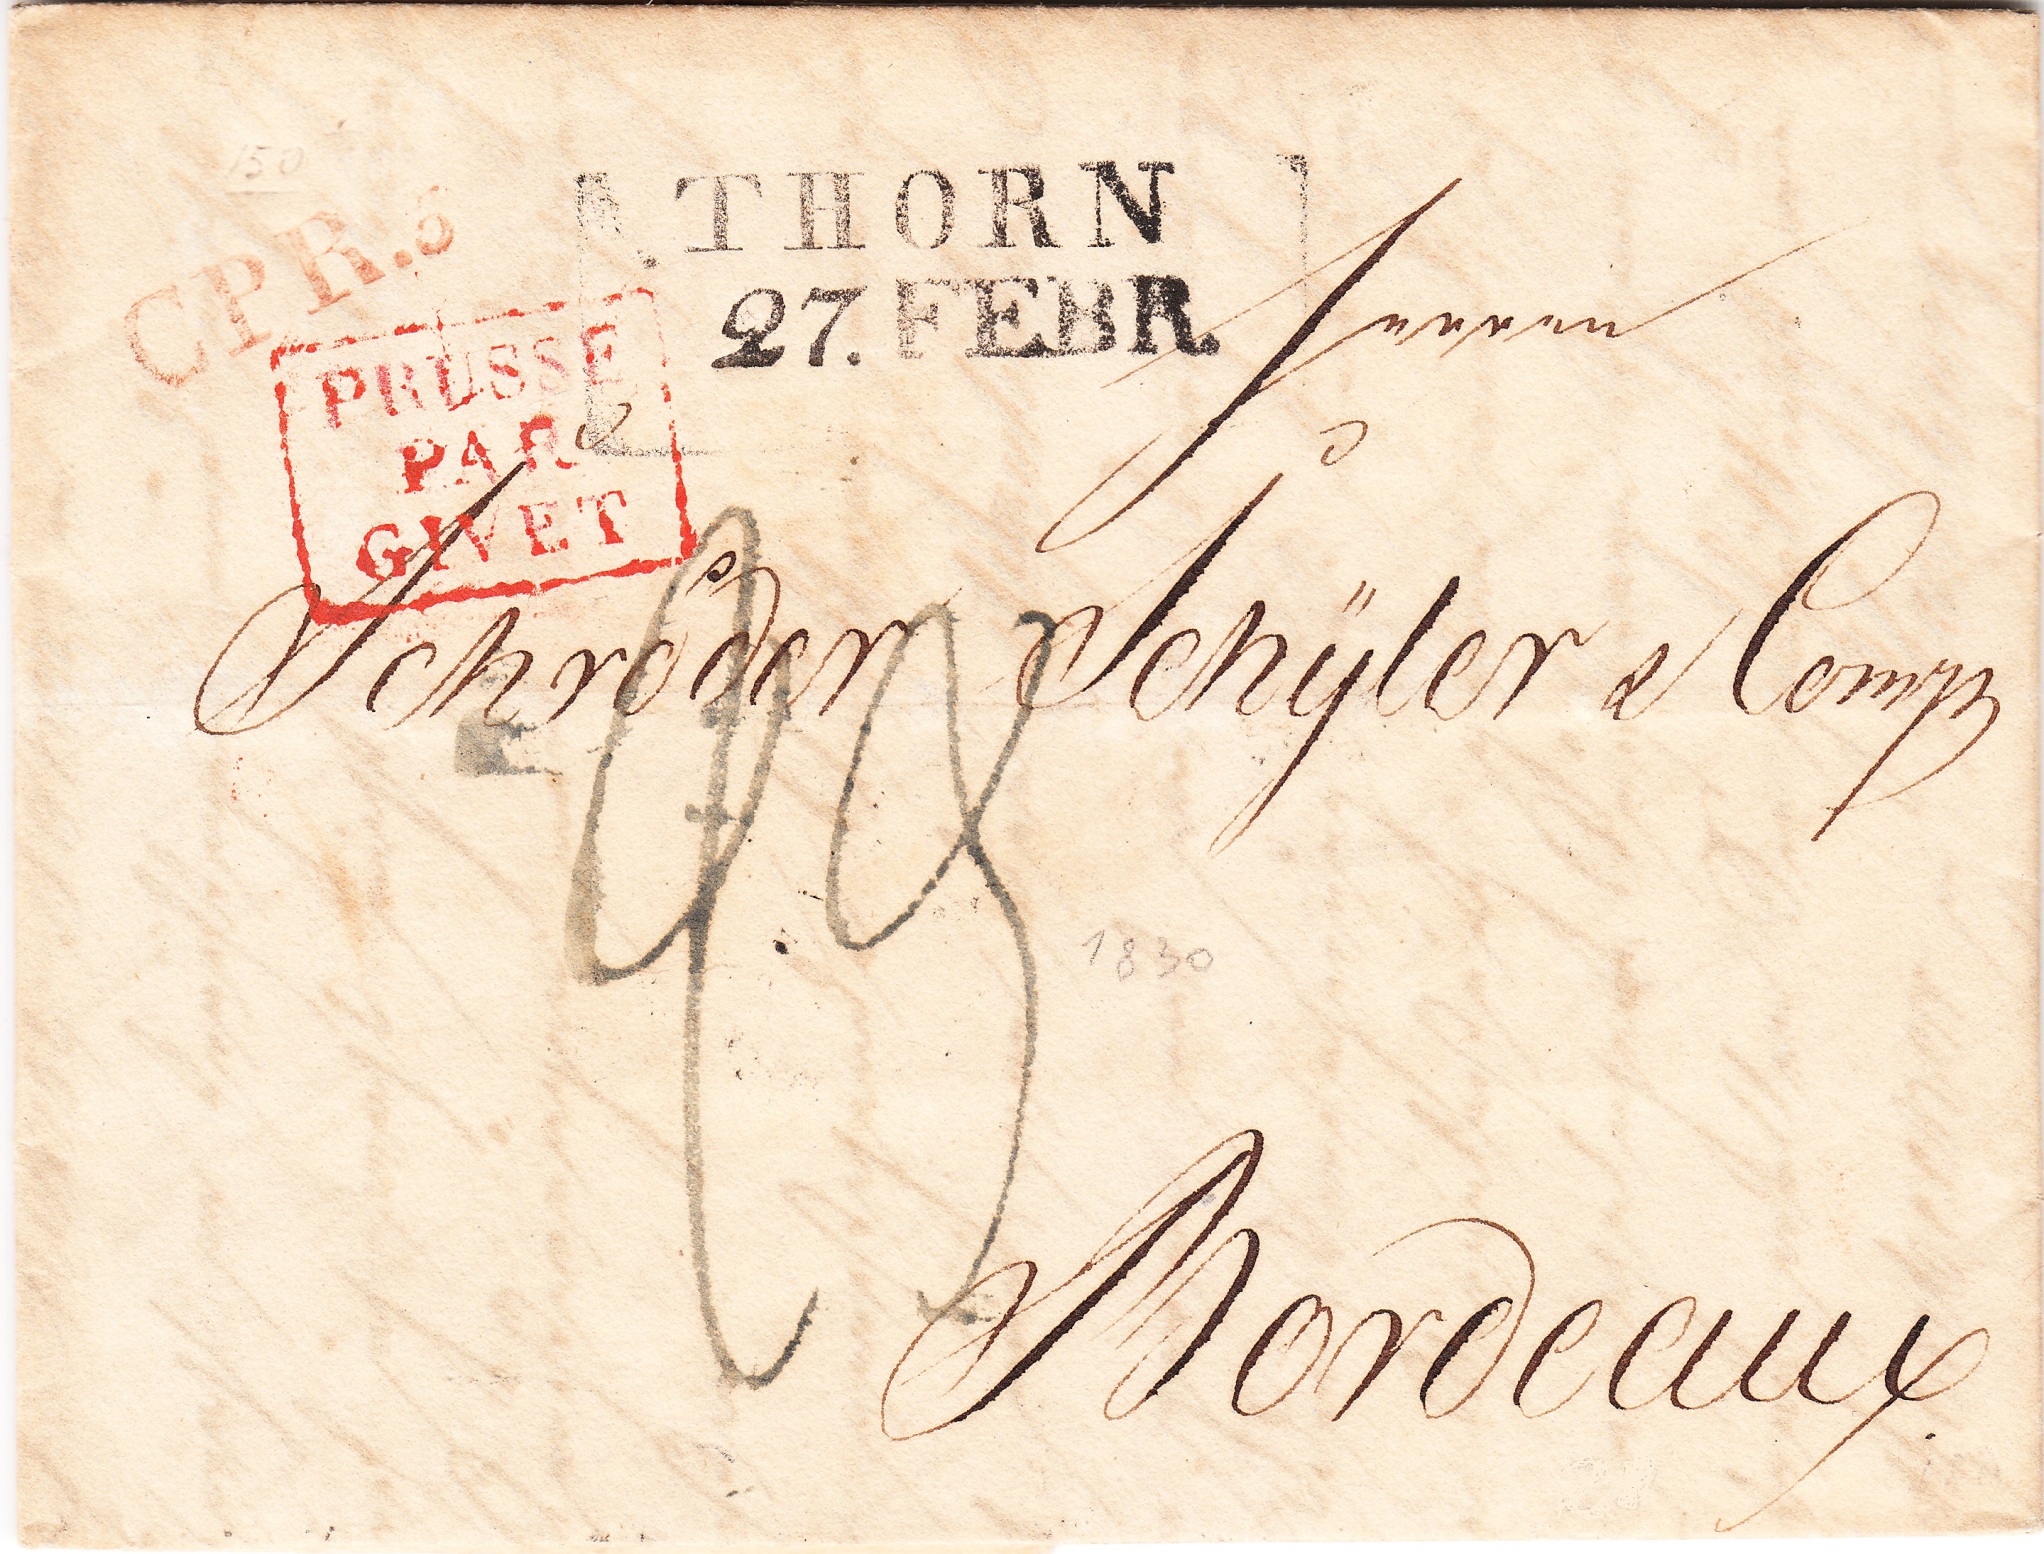 150
CPR.5
THORN
27.FEBR.
PRUSSE
PAR
GIVET
Herren
Schröder Schÿler & Comp
1830
Bordeaux